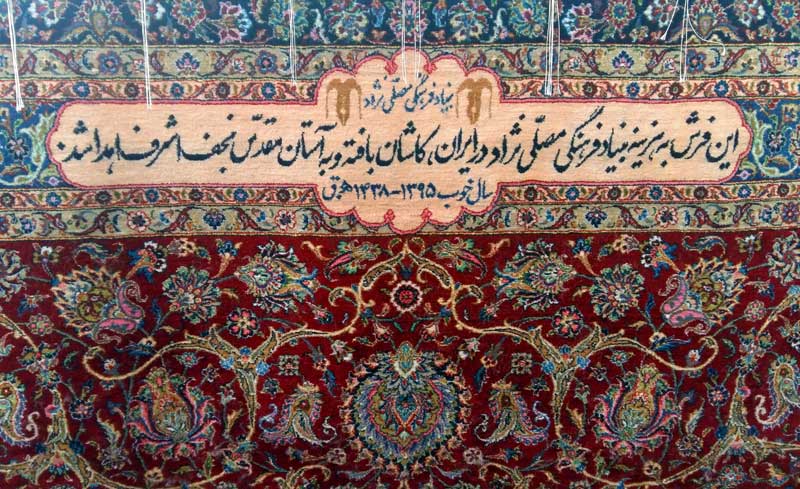 بنیاد فرهنگی مصلی نژاد
این فرش به هزینه بنیاد فرهنگی مصلّی نژاد در ایران، کاشان بافته و به آستان مقدّس نجف اشرف اهدا شد.
سال خوب ۱۳۹۵-۱۴۳۸ هـ ق